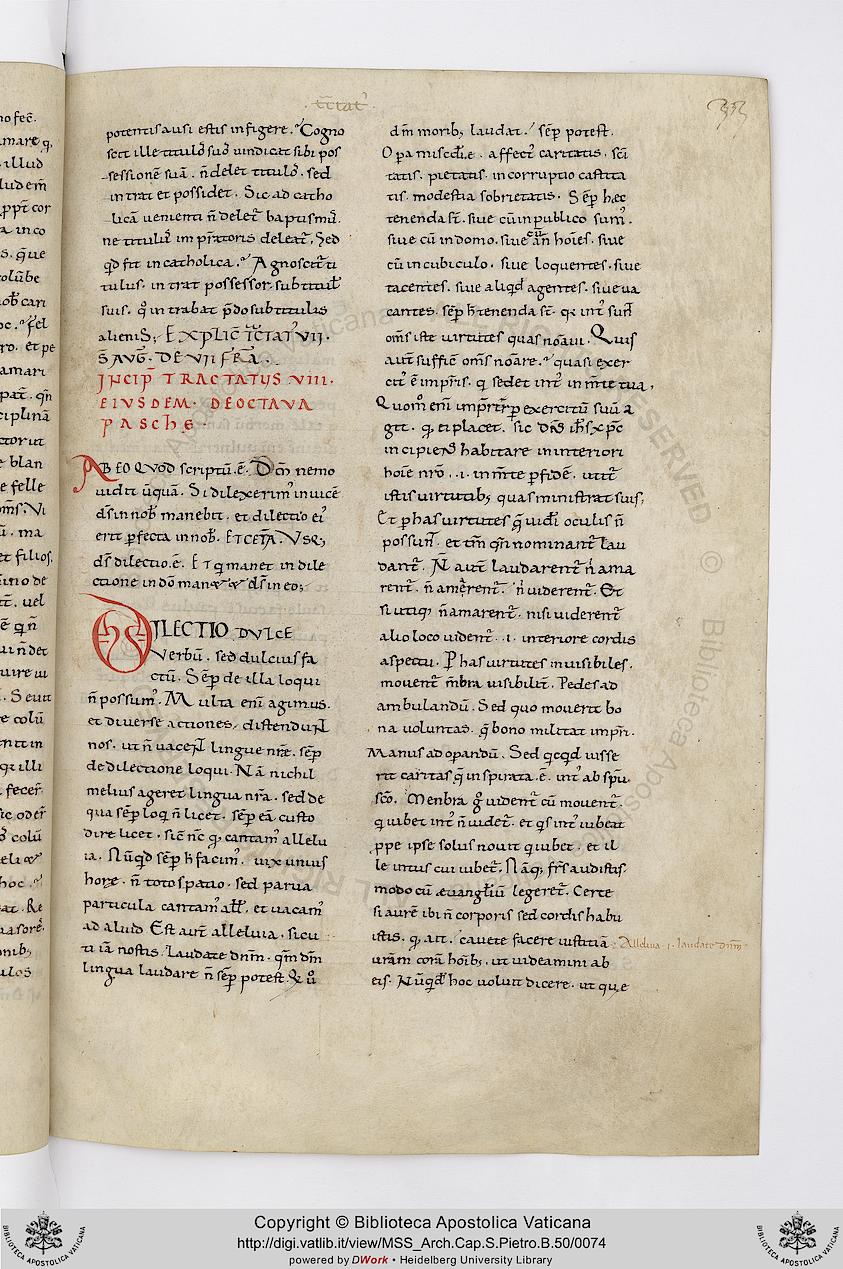 tctat
potentis ausi estis infigere. Cogno
scit ille titulo suo uindicat sibi pos
sessione sua. n delet titulo. sed
intrat et possidet. Sic ad catho
lica uenienti n delet baptismu.
ne titulu impratoris deleat. Sed
qd fit in catholica. Agnoscit ti
tulus. intrat possessor sub titul
suis. q intrabat pdo sub titulis
alienis; EXPLIC TCTAT VII.
S AUG. DE VII FRA.
INCIP TRACTATUS VIII.
EIUSDEM. DE OCTAVA
PASCHE.
AB EO QUOD scriptu.e. Dm nemo
uidit uqua. Si dilexerim inuice
ds in nob manebit. et dilectio ei
erit pfecta in nob. ET CETA. USQ;
ds dilectio.e. ET q manet in dile
ctione in do manet & ds in eo;
DILECTIO DULCE
Verbu. sed dulcius fa
ctu. Sep de illa loqui
n possum. Multa eni agimus.
et diuerse actiones. distendunt
nos. ut n uacent lingue nre. sep
de dilectione loqui. Na nichil
melius ageret lingua nra. sed de
qua sep loq n licet. sep ea custo
dire licet. sic nc q cantam allelu
ia. Nuqd sep h facim. uix unius
hore. n toto spatio. sed parua
particula cantam all. et uacam
ad aliud Est aut alleluia. sicu
ti ia nostis. Laudate dnm. qm dm
lingua laudare n sep potest. Q u
dm morib; laudat. sep potest.
Opa miscdie. affect caritatis. sci
tatis. pietatis. incorruptio castita
tis. modestia sobrietatis. Sep hec
tenenda st. siue cu in publico sum.
siue cu in domo. siue cu an hoies. siue
cu in cubiculo. siue loquentes. siue
tacentes. siue aliqd agentes. siue ua
cantes. sep h tenenda st. qr int sunt
oms iste uirtutes quas noaui. Quis
aut suffic oms noare. quasi exer
cit e impris. q sedet int in mte tua,
Quom eni imprtr p exercitu suu a
git. q ei placet. sic dns ihs xpc
incipiens habitare in interiori
hoie nro. .i. in mte p fide. utit
istis uirtutib; quas ministrat suis;
Et p has uirtutes q uidi oculis n
possunt. et tm qn nominant lau
dant. N aut laudarent n ama
rent. n amarent. n uiderent. Et
si utiq; n amarent. nisi uiderent
alio loco uident. .i. interiore cordis
aspectu. P has uirtutes inuisibiles.
mouent mbra uisibilit. Pedes ad
ambulandu. Sed quo mouerit bo
na uoluntas. q bono militat impri.
Manus ad opandu. Sed qcqd iusse
rit caritas q inspirata.e. int ab spu.
sco. Menbra g uident cu mouent.
q iubet int n uidet. et qs int iubeat
ppe ipse solus nouit q iubet. et il
le intus cui iubet. Naq; frs audistis.
modo cu euangliu legeret. Certe
si aure ibi n corporis sed cordis habu
istis. q ait. cauete facere iustitia
uram cora hoib; ut uideamini ab
eis. Nuqd hoc uoluit dicere. ut que
Alleluia .i. laudate dnm
Copyright © Biblioteca Apostolica Vaticana
http://digi.vatlib.it/view/MSS_Arch.Cap.S.Pietro.B.50/0074
powered by DWork • Heidelberg University Library
BIBLIOTECA APOSTOLICA VATICANA
BIBLIOTECA APOSTOLICA VATICANA